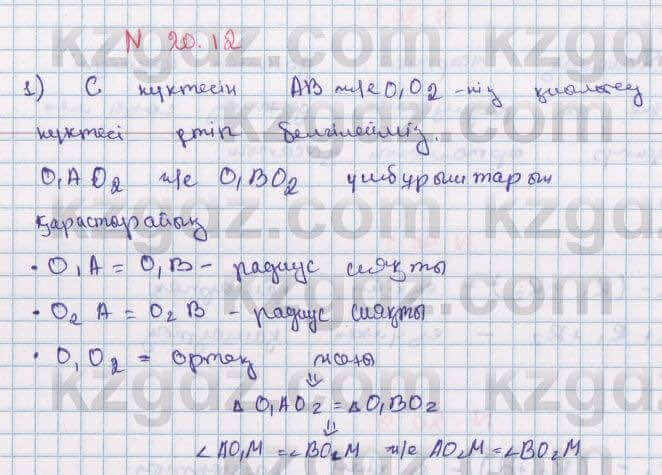 N 20.12
1) С нүктесін AB ж/е O₁O₂-нің қиылысу
нүктесі ретінде белгілейміз.
O₁AO₂ ж/е O₁BO₂ үшбұрыштарын
қарастырайық
• O₁A = O₁B - радиус сияқты
• O₂A = O₂B - радиус сияқты
• O₁O₂ = ортақ жағы
⇓
△O₁AO₂ = △O₁BO₂
⇓
∠AO₁M = ∠BO₂M ж/е AO₂M = ∠BO₂M
kzgdz.com